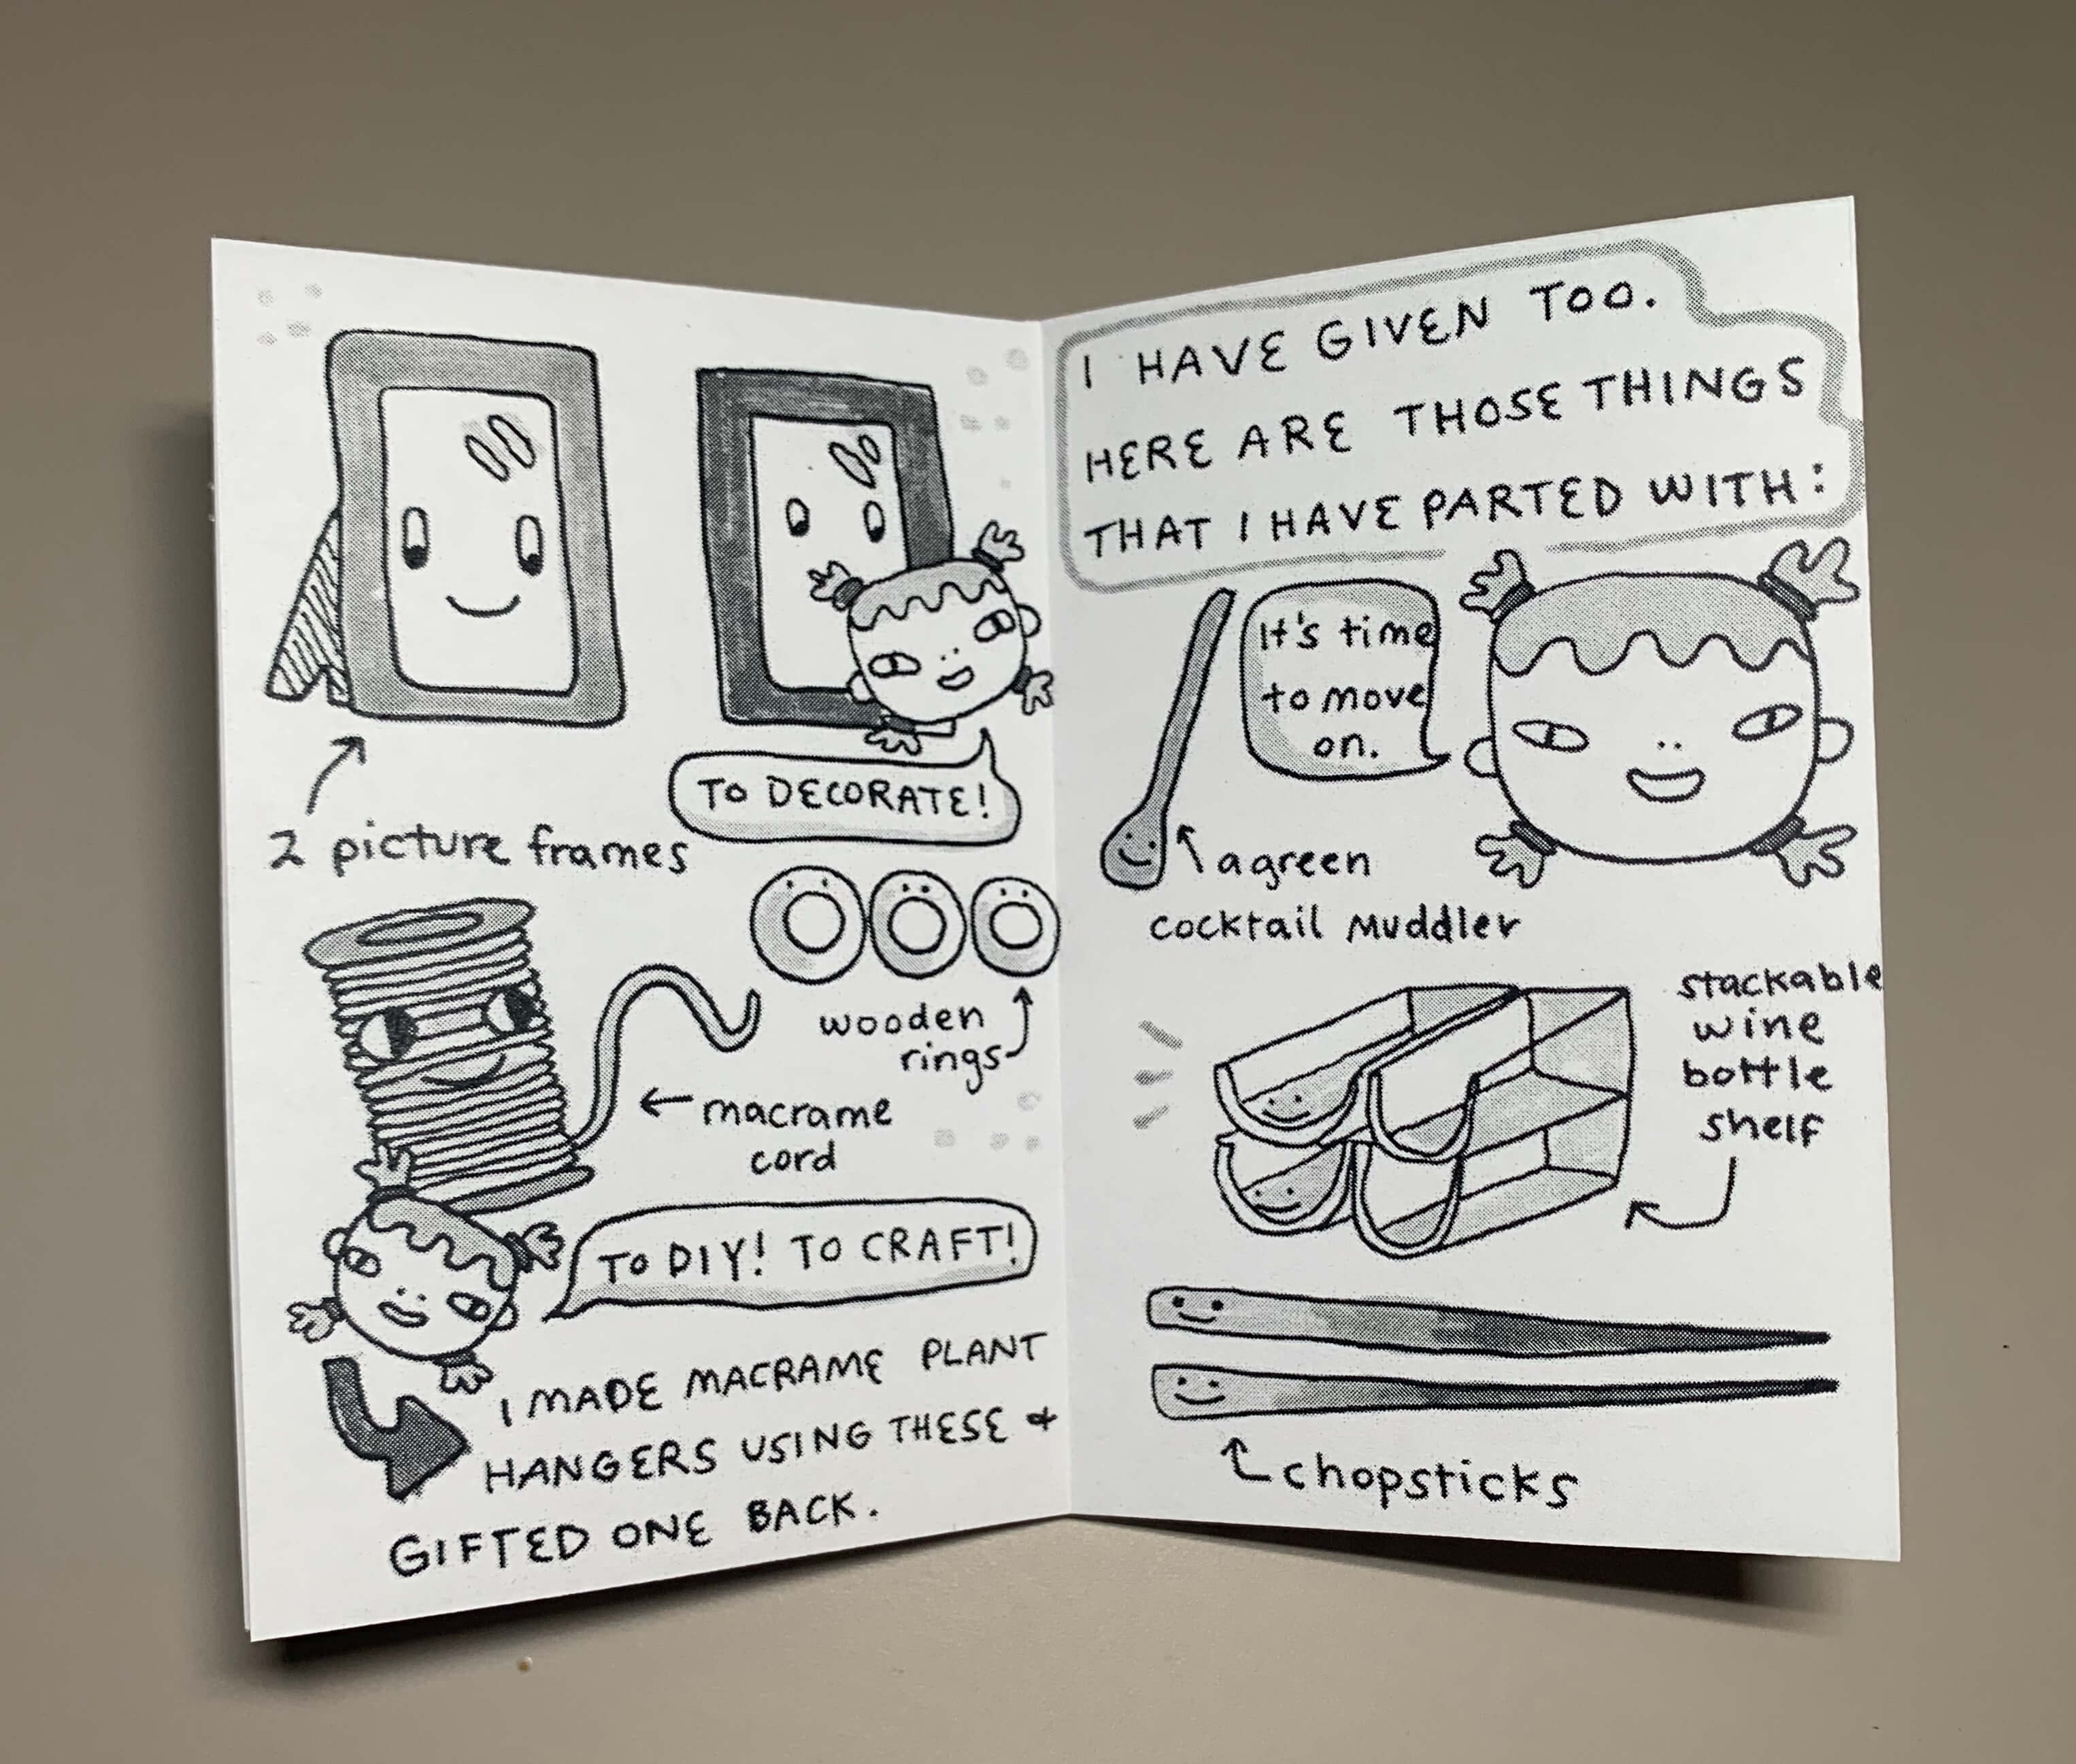 2 picture frames
TO DECORATE!
wooden
rings
macrame
cord
TO DIY! TO CRAFT!
I MADE MACRAME PLANT
HANGERS USING THESE &
GIFTED ONE BACK.
I HAVE GIVEN TOO.
HERE ARE THOSE THINGS
THAT I HAVE PARTED WITH:
It's time
to move
on.
a green
cocktail muddler
stackable
wine
bottle
shelf
chopsticks